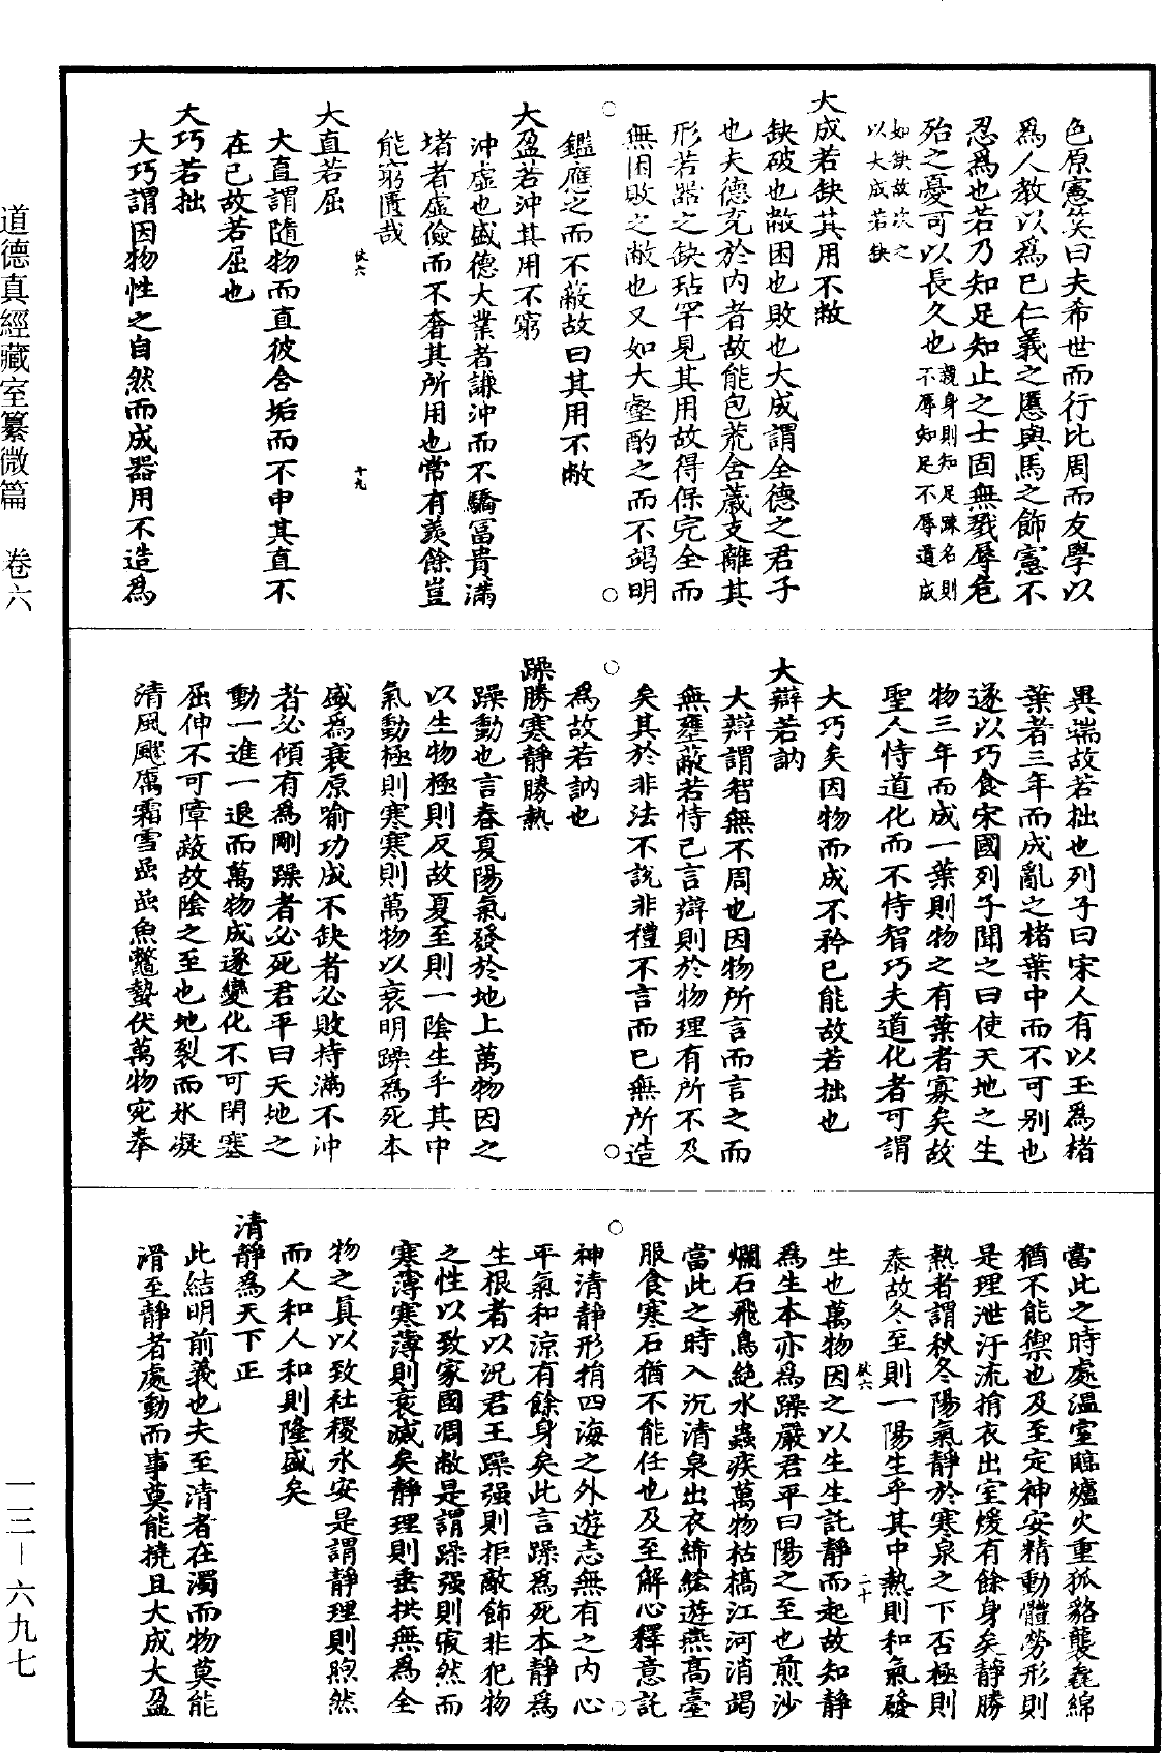 色原憲笑曰夫希世而行比周而友學以
爲人教以爲已仁義之慝輿馬之飾憲不
忍爲也若乃知足知止之士固無戮辱危
殆之憂可以長久也親身則知足踈名則
不辱知足不辱道成
如缺故次之
以大成若缺
大成若缺其用不敝
缺破也敝困也敗也大成謂全德之君子
也夫德充於内者故能包荒含薉支離其
形若器之缺玷罕見其用故得保完全而
無困敗之敝也又如大壑酌之而不竭明
鑑應之而不蔽故曰其用不敝
大盈若沖其用不窮
沖虛也盛德大業者謙沖而不驕富貴滿
堵者虛儉而不奢其所用也常有羨餘豈
能窮匱哉
使六 十九
大直若屈
大直謂隨物而直彼含垢而不申其直不
在已故若屈也
大巧若拙
大巧謂因物性之自然而成器用不造爲
異端故若拙也列子曰宋人有以玉爲楮
葉者三年而成亂之楮葉中而不可别也
遂以巧食宋國列子聞之曰使天地之生
物三年而成一葉則物之有葉者寡矣故
聖人恃道化而不恃智巧夫道化者可謂
大巧矣因物而成不矜已能故若拙也
大辯若訥
大辯謂智無不周也因物所言而言之而
無壅蔽若恃己言辯則於物理有所不及
矣其於非法不說非禮不言而已無所造
爲故若訥也
躁勝寒靜勝熱
躁動也言春夏陽氣發於地上萬物因之
以生物極則反故夏至則一陰生乎其中
氣動極則寒寒則萬物以衰明躁爲死本
盛爲衰原喻功成不缺者必敗持滿不沖
者必傾有爲剛躁者必死君平曰天地之
動一進一退而萬物成遂變化不可閉塞
屈伸不可障蔽故陰之至也地裂而氷凝
清風飂厲霜雪嵒嵒魚鼈蟄伏萬物宛拳
當此之時處溫室臨爐火重狐貉襲毳綿
猶不能禦也及至定神安精動體勞形則
是理泄汗流揃衣出室煖有餘身矣靜勝
熱者謂秋冬陽氣靜於寒泉之下否極則
泰故冬至則一陽生乎其中熱則和氣發
使六 二十
生也萬物因之以生生託靜而起故知靜
爲生本亦爲躁嚴君平曰陽之至也煎沙
爛石飛鳥絶水蟲疾萬物枯槁江河消竭
當此之時入沉清泉出衣絺綌遊燕高臺
服食寒石猶不能任也及至解心釋意託
神清靜形捎四海之外遊志無有之内心
平氣和涼有餘身矣此言躁爲死本靜爲
生根者以况君王躁强則拒敵飾非犯物
之性以致家國凋敝是謂躁强則寂然而
寒薄寒薄則衰滅矣靜理則垂拱無爲全
物之眞以致社稷永安是謂靜理則煦然
而人和人和則隆盛矣
清靜爲天下正
此結明前義也夫至清者在濁而物莫能
滑至靜者處動而事莫能撓且大成大盈
道德真經藏室纂微篇 卷六
一三－六九七